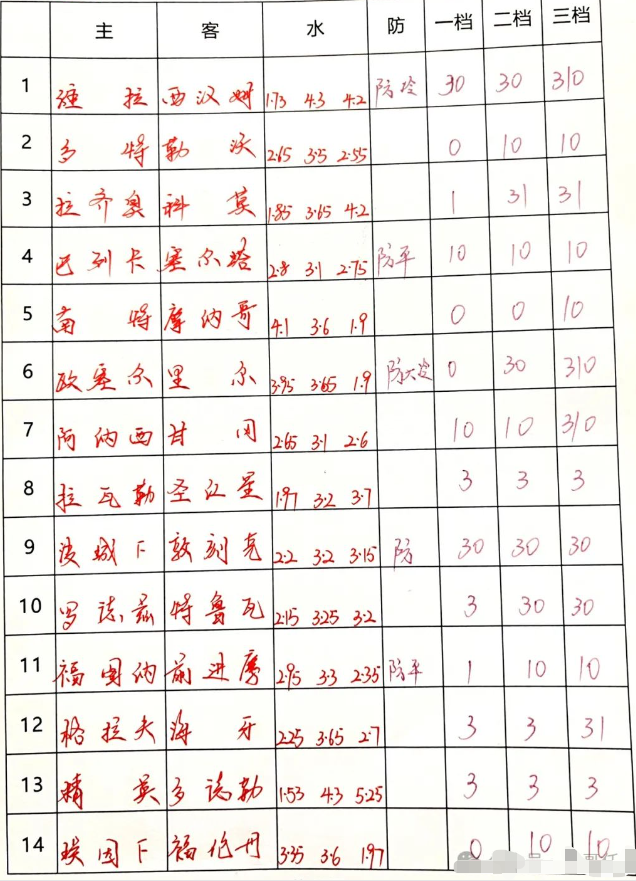 主 客 水 防 一档 二档 三档
1 缠拉 西汉姆 1.73 4.3 4.2 防冷 30 30 310
2 多特 勒沃 2.65 3.5 2.55 0 10 10
3 拉齐奥 科莫 1.85 3.65 4.2 1 31 31
4 巴列卡 塞尔塔 2.8 3.1 2.75 防平 10 10 10
5 南特 摩纳哥 4.1 3.6 1.9 0 0 10
6 欧塞尔 里尔 3.95 3.65 1.9 防大冷 0 30 310
7 阿纳西 甘冈 2.65 3.1 2.6 10 10 310
8 拉瓦勒 圣红星 1.97 3.2 3.7 3 3 3
9 波城下 敦刻克 2.2 3.2 3.15 防 30 30 30
10 罗德兹 特鲁瓦 2.15 3.25 3.2 3 30 30
11 福图纳 前进鹰 2.95 3.3 2.35 防平 1 10 10
12 格拉夫 海牙 2.25 3.65 2.7 3 3 31
13 精英 多德勒 1.53 4.3 5.25 3 3 3
14 埃因下 福伦丹 3.35 3.6 1.97 0 10 10